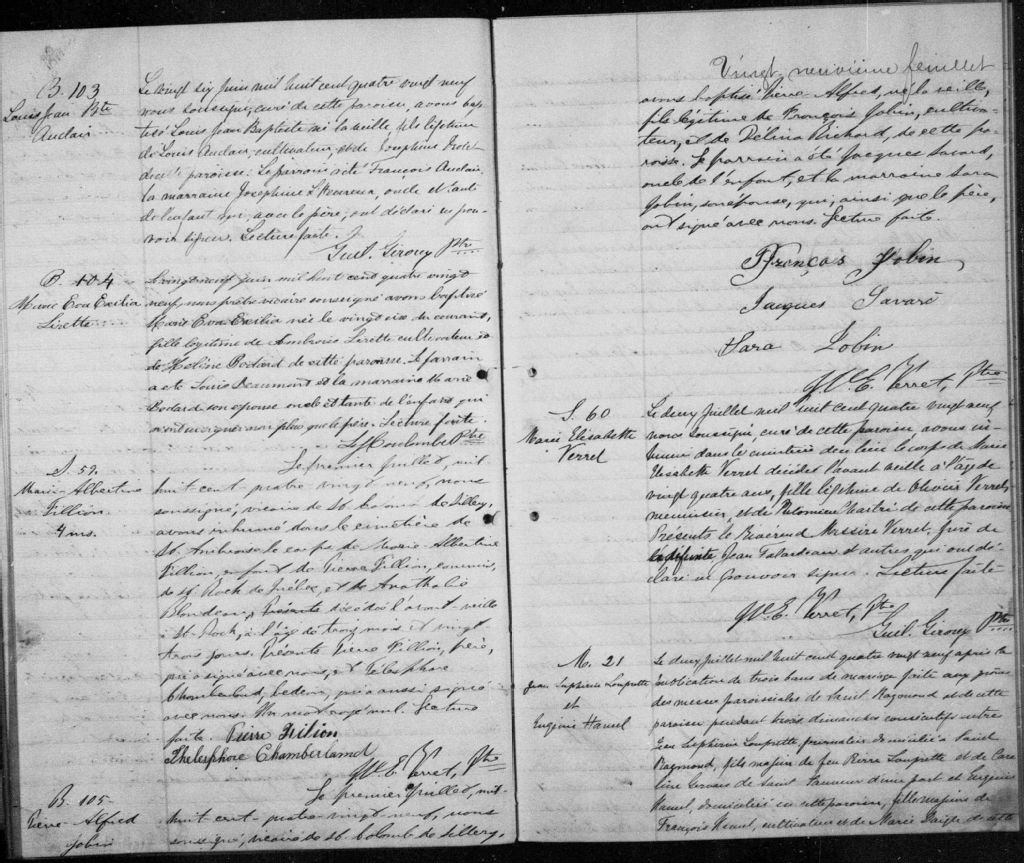 B. 103
Louis Jean Bte
Auclair
Le vingt six juin mil huit cent quatre vingt neuf
nous soussigné, curé de cette paroisse, avons bap-
tisé Louis Jean Baptiste né la veille, fils légitime
de Louis Auclair, cultivateur, et de Josephine Drolet
de cette paroisse. Le parrain a été François Auclair,
la marraine Josephine L'Heureux, oncle et tante
de l'enfant qui, avec le père, ont déclaré ne pou-
voir signer. Lecture faite.
Guil. Giroux Ptre
B. 104
Marie Eva Exilia
Lirette
Le vingt neuf juin mil huit cent quatre vingt
neuf nous prêtre vicaire soussigné avons baptisé
Marie Eva Exilia née le vingt six du courant,
fille légitime de Ambroise Lirette cultivateur et
de Hélène Bédard de cette paroisse. Le parrain
a été Louis Beaumont et la marraine Marie
Bédard son épouse oncle et tante de l'enfant qui
n'ont su signer non plus que le père. Lecture faite.
Coulombe Ptre
S. 59.
Marie-Albertine
Fillion.
4 ms.
Le premier juillet, mil-
huit-cent-quatre-vingt-neuf, nous
soussigné, vicaire de St Colomb de Sillery,
avons inhumé dans le cimetière de
St. Ambroise le corps de Marie-Albertine
Fillion, enfant de Pierre Fillion, commis,
de St. Roch de Québec, et de Anathalie
Blondeau, décédée l'avant-veille
à St-Roch, à l'âge de trois mois et vingt
trois jours. Présents Pierre Fillion, père,
qui a signé avec nous, et Télesphore
Chamberland, bedeau, qui a aussi signé
avec nous. Un mot rayé nul. Lecture
faite. Pierre Filion
Thelesphore Chamberland
Ph. E. Verret, Ptre
B. 105
Pierre-Alfred
Jobin
Le premier juillet, mil-
huit-cent-quatre-vingt-neuf, nous
soussigné, vicaire de St. Colomb de Sillery,
Vingt-neuvième feuillet
avons baptisé Pierre-Alfred, né la veille,
fils légitime de François Jobin, cultiva-
teur, et de Délina Richard, de cette pa-
roisse. Le parrain a été Jacques Savard,
oncle de l'enfant, et la marraine Sara
Jobin, son épouse, qui, ainsi que le père,
ont signé avec nous. Lecture faite.
François Jobin
Jacques Savard
Sara Jobin
E. Verret, Ptre
S. 60
Marie Elisabeth
Verret
Le deux Juillet mil huit cent quatre vingt neuf
nous soussigné, curé de cette paroisse avons in-
humé dans le cimetière du lieu le corps de Marie
Elisabeth Verret décédée l'avant veille à l'âge de
vingt quatre ans, fille légitime de Olivier Verret,
meunier, et de Philomène Chartré de cette paroisse
Présents le Révérend Messire Verret, frère de
la défunte, Jean Talardeau et autres qui ont dé-
claré ne pouvoir signer. Lecture faite
E. Verret, Ptre
Guil. Giroux Ptre
M. 21
Jean Sépherin Louprette
et
Eugénie Hamel
Le deux Juillet mil huit cent quatre vingt neuf après la
publication de trois bans de mariage faite aux prônes
des messes paroissiales de Saint Raymond et de cette
paroisse pendant trois dimanches consécutifs entre
Jean Sépherin Louprette journalier domicilié à Saint
Raymond, fils majeur de feu Pierre Louprette et de Caro-
line Gervais de Saint Sauveur d'une part et Eugénie
Hamel, domiciliée en cette paroisse, fille majeure de
François Hamel, cultivateur et de Marie Daigle de cette